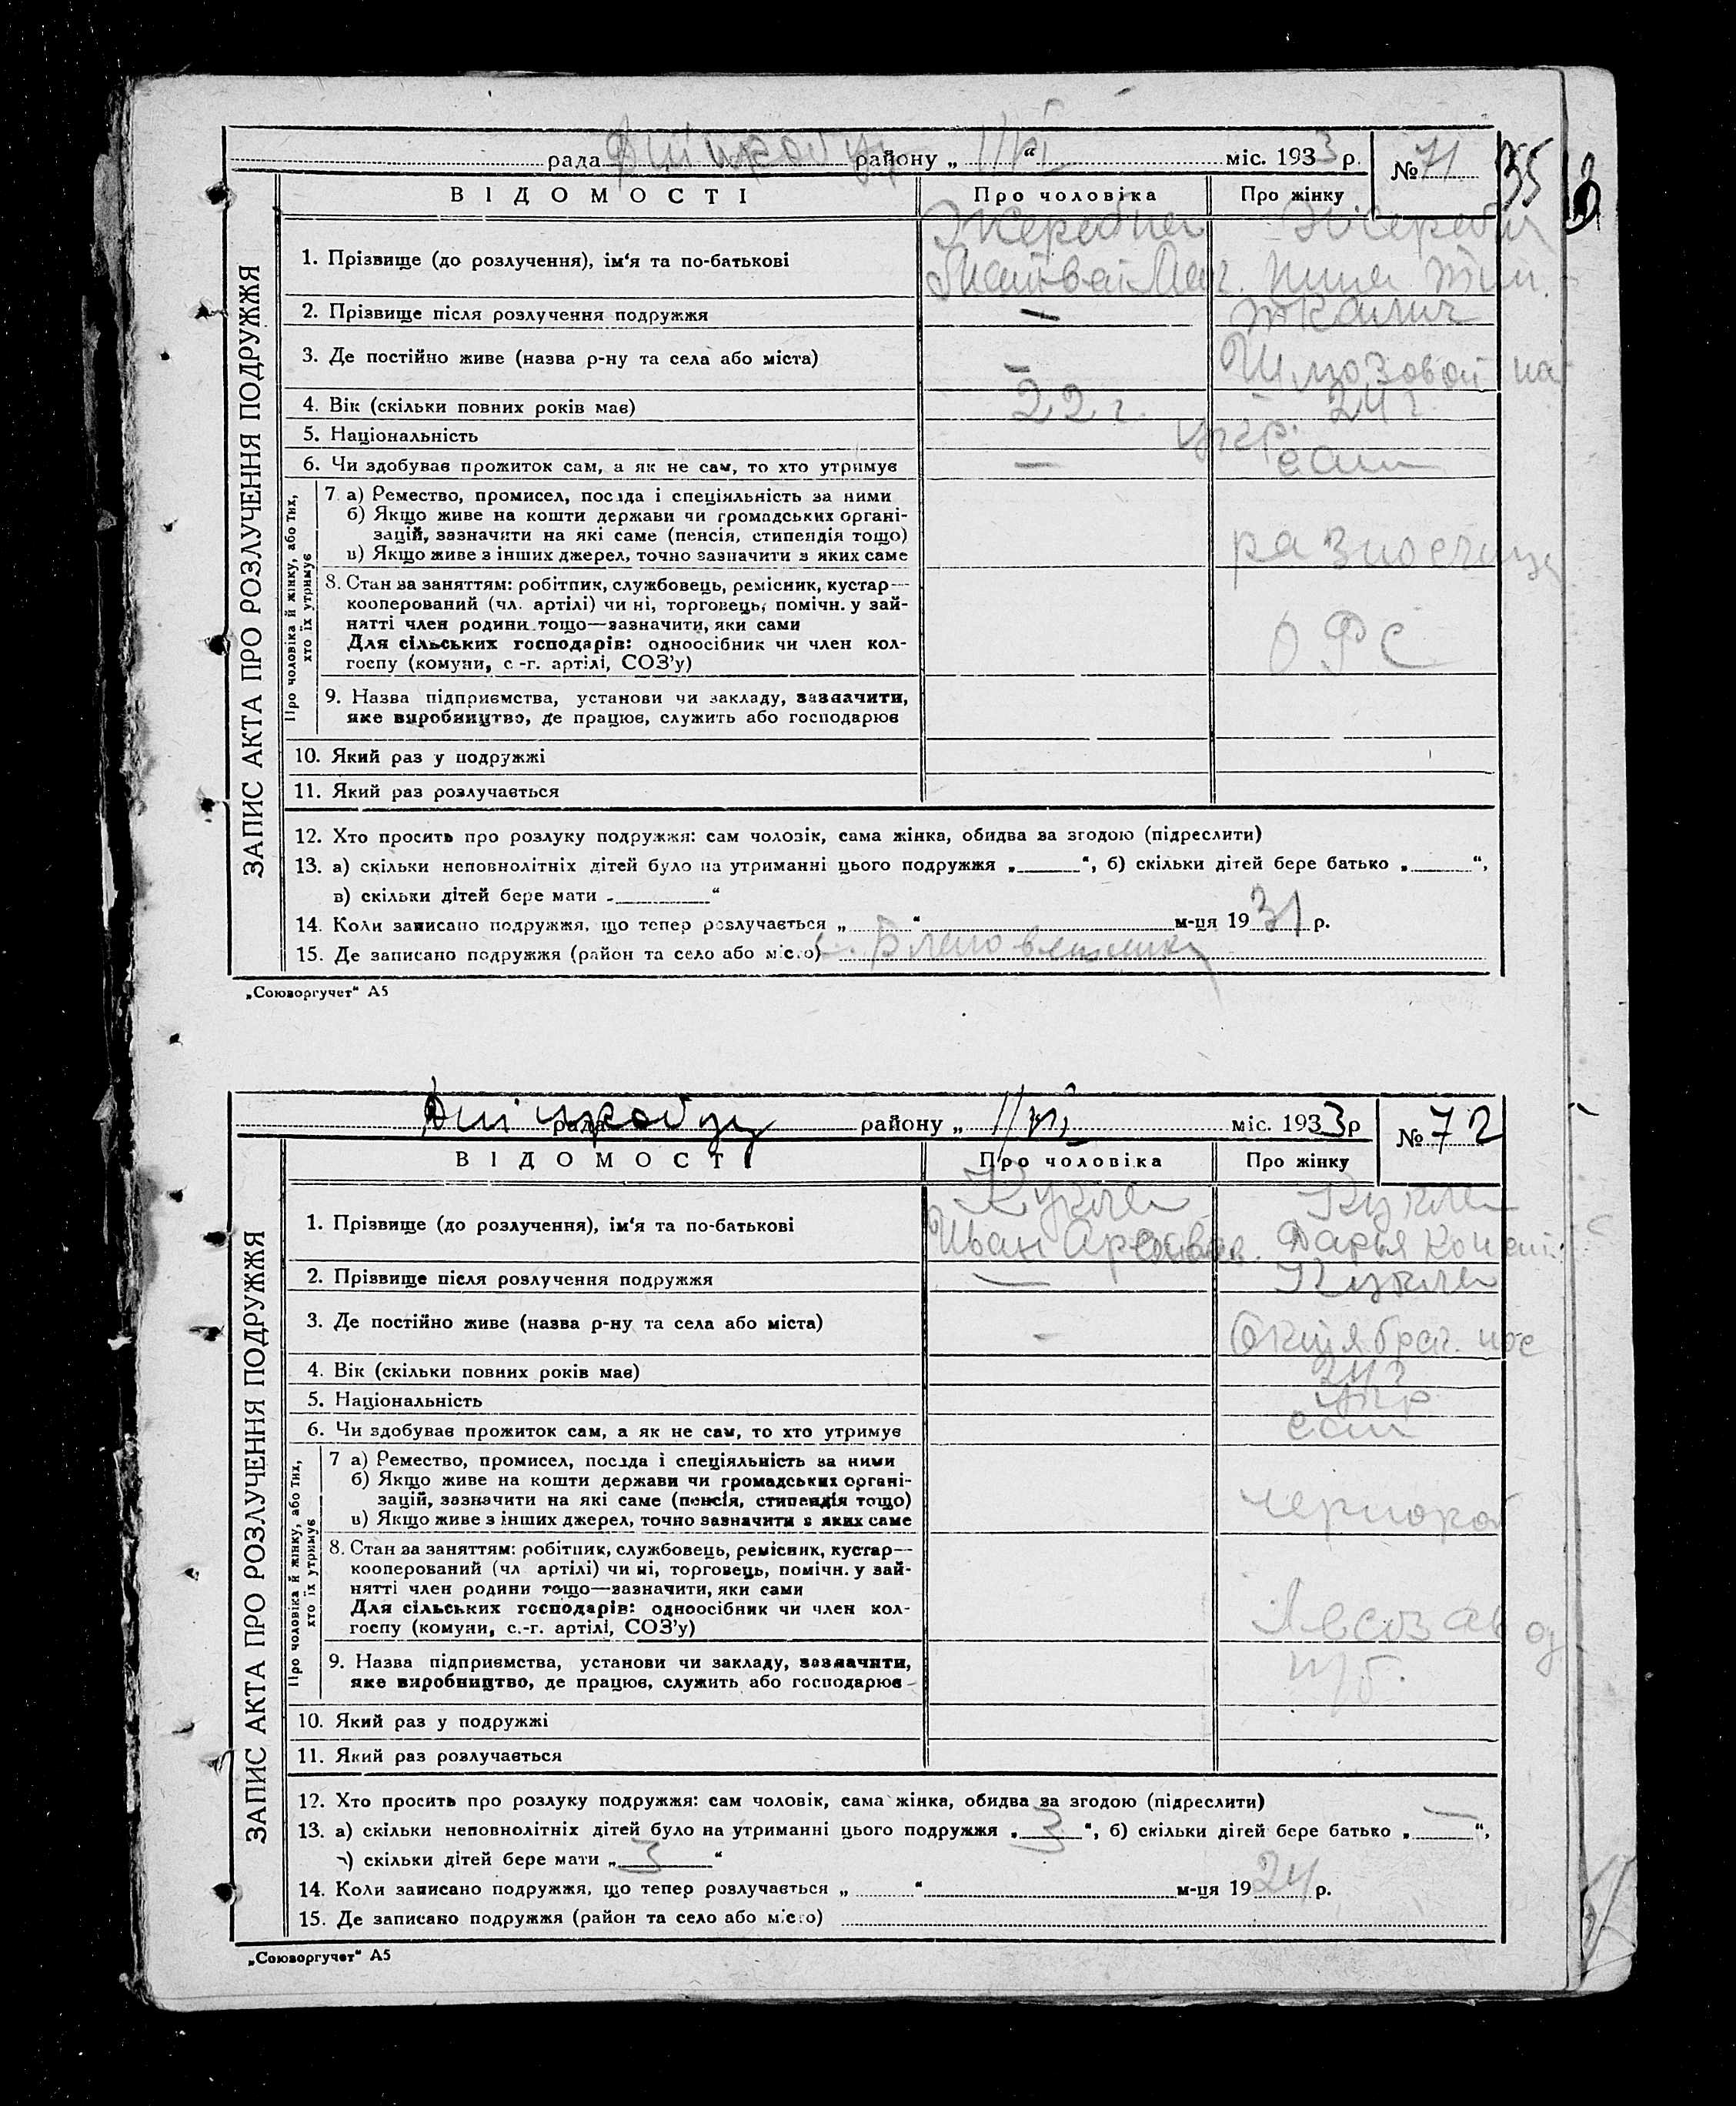 рада району „ 11/VI “ міс. 1933 р. № 71
35
ВІДОМОСТІ Про чоловіка Про жінку
ЗАПИС АКТА ПРО РОЗЛУЧЕННЯ ПОДРУЖЖЯ
1. Прізвище (до розлучення), ім'я та по-батькові
2. Прізвище після розлучення подружжя —
3. Де постійно живе (назва р-ну та села або міста) –
4. Вік (скільки повних років має) 22 г. 24 г.
5. Національність укр.
6. Чи здобував прожиток сам, а як не сам, то хто утримує — сам
Про чоловіка й жінку, або тих, хто їх утримує
7 а) Ремество, промисел, посада і спеціяльність за ними
б) Якщо живе на кошти держави чи громадських органі-
зацій, зазначити на які саме (пенсія, стипендія тощо)
в) Якщо живе з інших джерел, точно зазначити з яких саме
8. Стан за заняттям: робітник, службовець, ремісник, кустар—
кооперований (чл. артілі) чи ні, торговець, помічн. у зай-
нятті член родини тощо—зазначити, яки сами
Для сільських господарів: одноосібник чи член кол-
госпу (комуни, с.-г. артілі, СОЗ'у)
ОРС
9. Назва підприємства, установи чи закладу, зазначити,
яке виробництво, де працює, служить або господарює
10. Який раз у подружжі
11. Який раз розлучається
12. Хто просить про розлуку подружжя: сам чоловік, сама жінка, обидва за згодою (підреслити)
13. а) скільки неповнолітніх дітей було на утриманні цього подружжя „ “, б) скільки дітей бере батько „ “,
в) скільки дітей бере мати „ “
14. Коли записано подружжя, що тепер розлучається „ “ м-ця 1931 р.
15. Де записано подружжя (район та село або місто)
„Союзоргучет“ А5
рада району „ 11/VI “ міс. 1933 р № 72
ВІДОМОСТІ Про чоловіка Про жінку
ЗАПИС АКТА ПРО РОЗЛУЧЕННЯ ПОДРУЖЖЯ
Кукла Кукла
1. Прізвище (до розлучення), ім'я та по-батькові
Иван Дарья Конст.
2. Прізвище після розлучення подружжя — Кукла
3. Де постійно живе (назва р-ну та села або міста) – Октябрск. пос
4. Вік (скільки повних років має) 24 г
5. Національність укр
6. Чи здобував прожиток сам, а як не сам, то хто утримує сам
Про чоловіка й жінку, або тих, хто їх утримує
7 а) Ремество, промисел, посада і спеціяльність за ними
б) Якщо живе на кошти держави чи громадських органі-
зацій, зазначити на які саме (пенсія, стипендія тощо)
в) Якщо живе з інших джерел, точно зазначити з яких саме
чернораб
8. Стан за заняттям: робітник, службовець, ремісник, кустар—
кооперований (чл артілі) чи ні, торговець, помічн. у зай-
нятті член родини тощо—зазначити, яки сами
Для сільських господарів: одноосібник чи член кол-
госпу (комуни, с.-г. артілі, СОЗ'у)
Лесозавод
9. Назва підприємства, установи чи закладу, зазначити,
яке виробництво, де працює, служить або господарює
10. Який раз у подружжі
11. Який раз розлучається
12. Хто просить про розлуку подружжя: сам чоловік, сама жінка, обидва за згодою (підреслити)
13. а) скільки неповнолітніх дітей було на утриманні цього подружжя „ 3 “, б) скільки дітей бере батько „ — “,
в) скільки дітей бере мати „ 3 “
14. Коли записано подружжя, що тепер розлучається „ “ м-ця 1924 р.
15. Де записано подружжя (район та село або місто)
„Союзоргучет“ А5